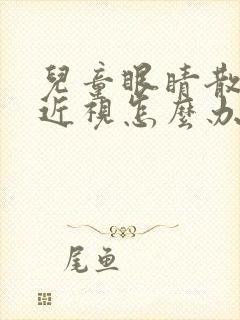 兒童眼睛散
近視怎麼办
尾鱼